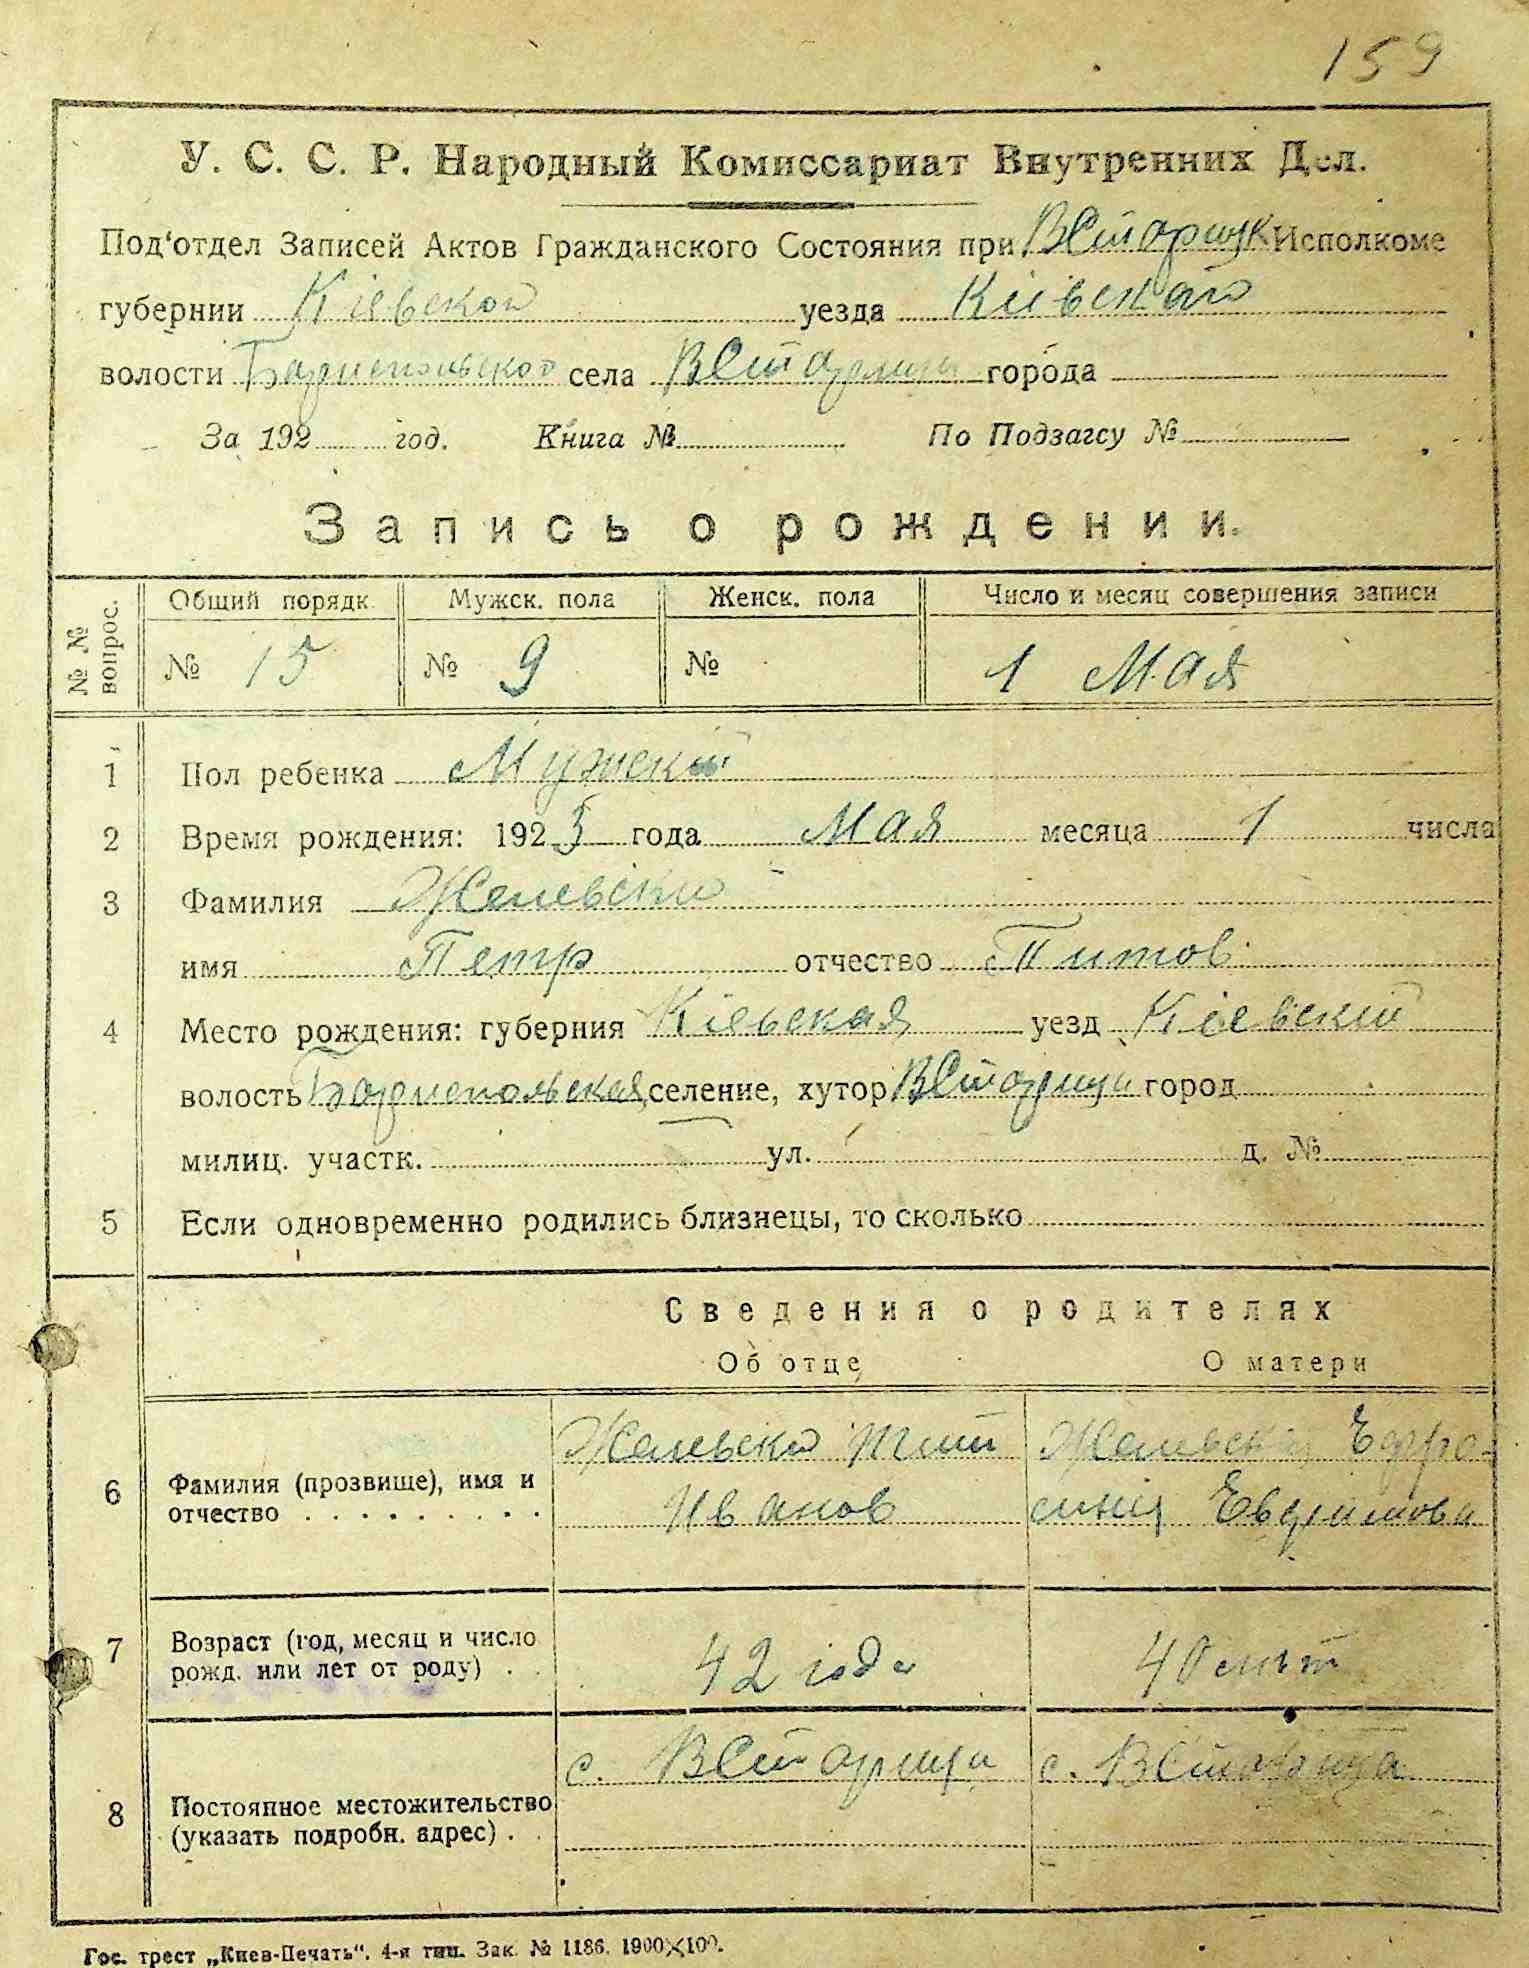 159
У. С. С. Р. Народный Комиссариат Внутренних Дел.
Под'отдел Записей Актов Гражданского Состояния при ВСтарицк Исполкоме
губернии Кіевской уезда Кіевскаго
волости Бориспольской села ВСтарицы города
За 192 год. Книга № По Подзагсу №
Запись о рождении.
№ № вопрос. Общий порядк. Мужск. пола Женск. пола Число и месяц совершения записи
№ 15 № 9 № 1 Мая
1 Пол ребенка Мужскій
2 Время рождения: 1923 года Мая месяца 1 числа
3 Фамилия
имя Петр отчество Титов
4 Место рождения: губерния Кіевская уезд Кіевскій
волость Бориспольская селение, хутор ВСтарица город
милиц. участк. ул. д. №
5 Если одновременно родились близнецы, то сколько
Сведения о родителях
Об отце О матери
6 Фамилия (прозвище), имя и Тит Ефро-
отчество Иванов синия Евфимова
7 Возраст (год, месяц и число
рожд. или лет от роду) 42 года 40 лѣт
с. ВСтарица с. ВСтарица
8 Постоянное местожительство
(указать подробн. адрес)
Гос. трест „Киев-Печать“. 4-я тип. Зак. № 1186. 1900×100.